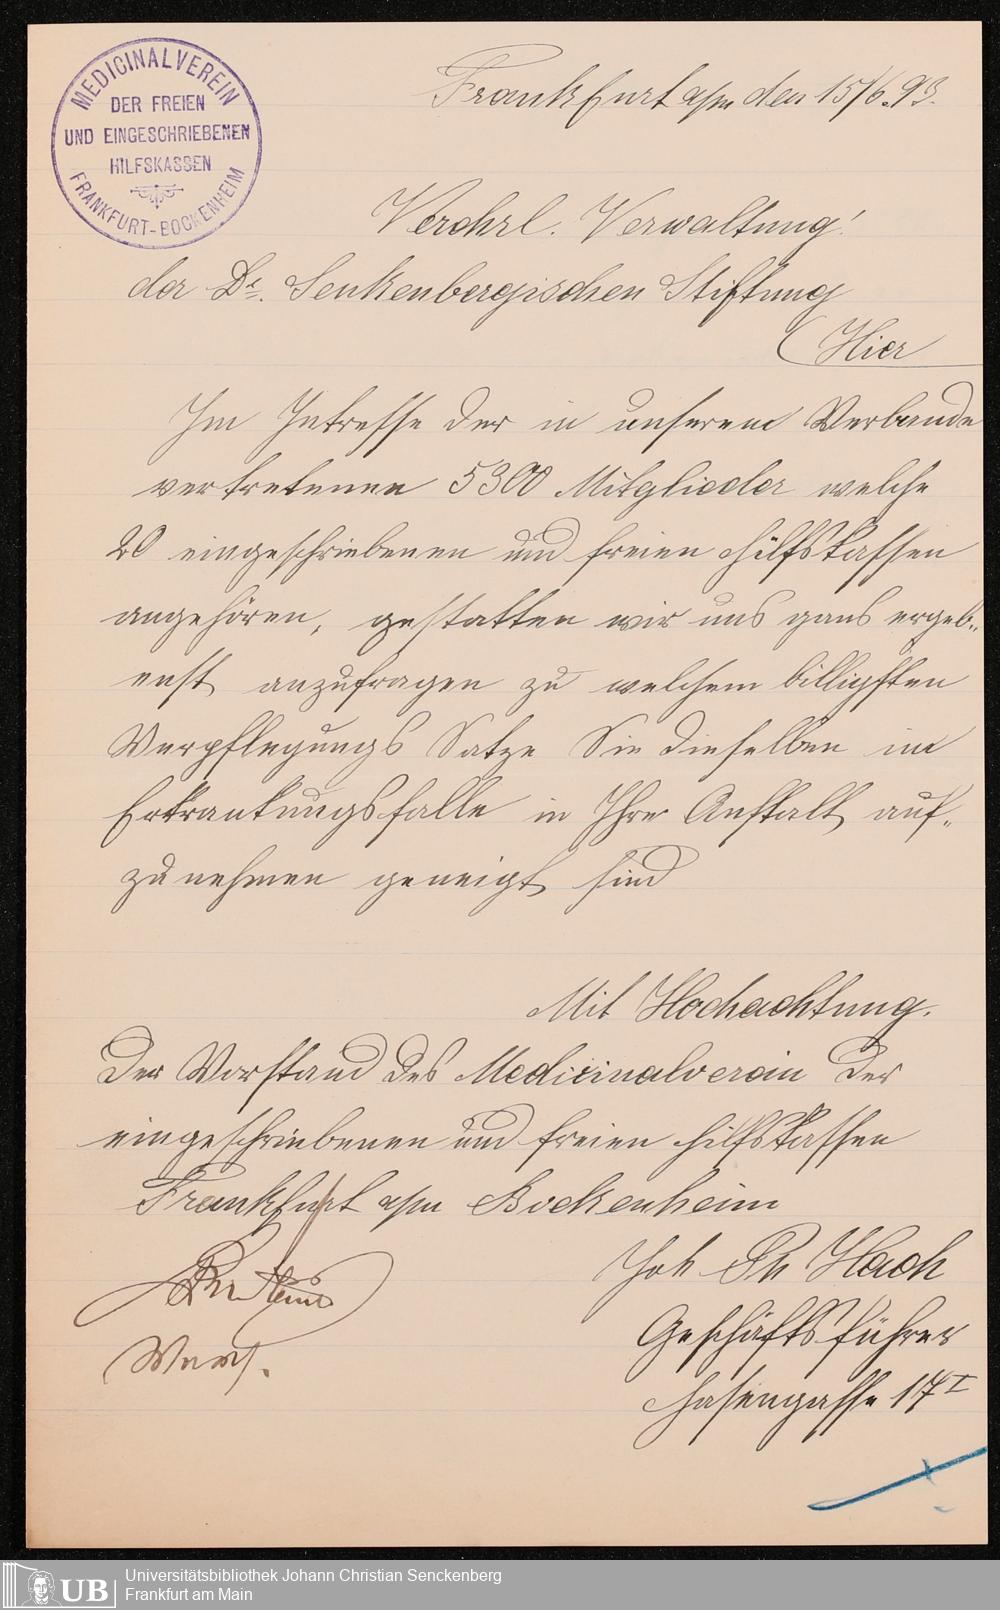 MEDICINALVEREIN
DER FREIEN
UND EINGESCHRIEBENEN
HILFSKASSEN
FRANKFURT-BOCKENHEIM
Frankfurt a/m den 15/6.93.
Verehrl. Verwaltung!
der Dr. Senkenbergischen Stiftung
Hier
Im Intresse der in unserem Verbande
vertretenen 5300 Mitglieder welche
20 eingeschriebenen und freien Hilfskassen
angehören, gestatten wir uns ganz ergeb„
enst anzufragen zu welchem billigsten
Verpflegungs Satze Sie dieselben im
Erkrankungsfalle in Ihre Anstalt auf„
zunehmen geneigt sind
Mit Hochachtung.
Der Vorstand des Medicinalverein der
eingeschriebenen und freien Hilfskassen
Frankfurt a/m Bockenheim
Joh Ph Hach
Geschäftsführer
Hasengasse 17 I
UB
Universitätsbibliothek Johann Christian Senckenberg
Frankfurt am Main